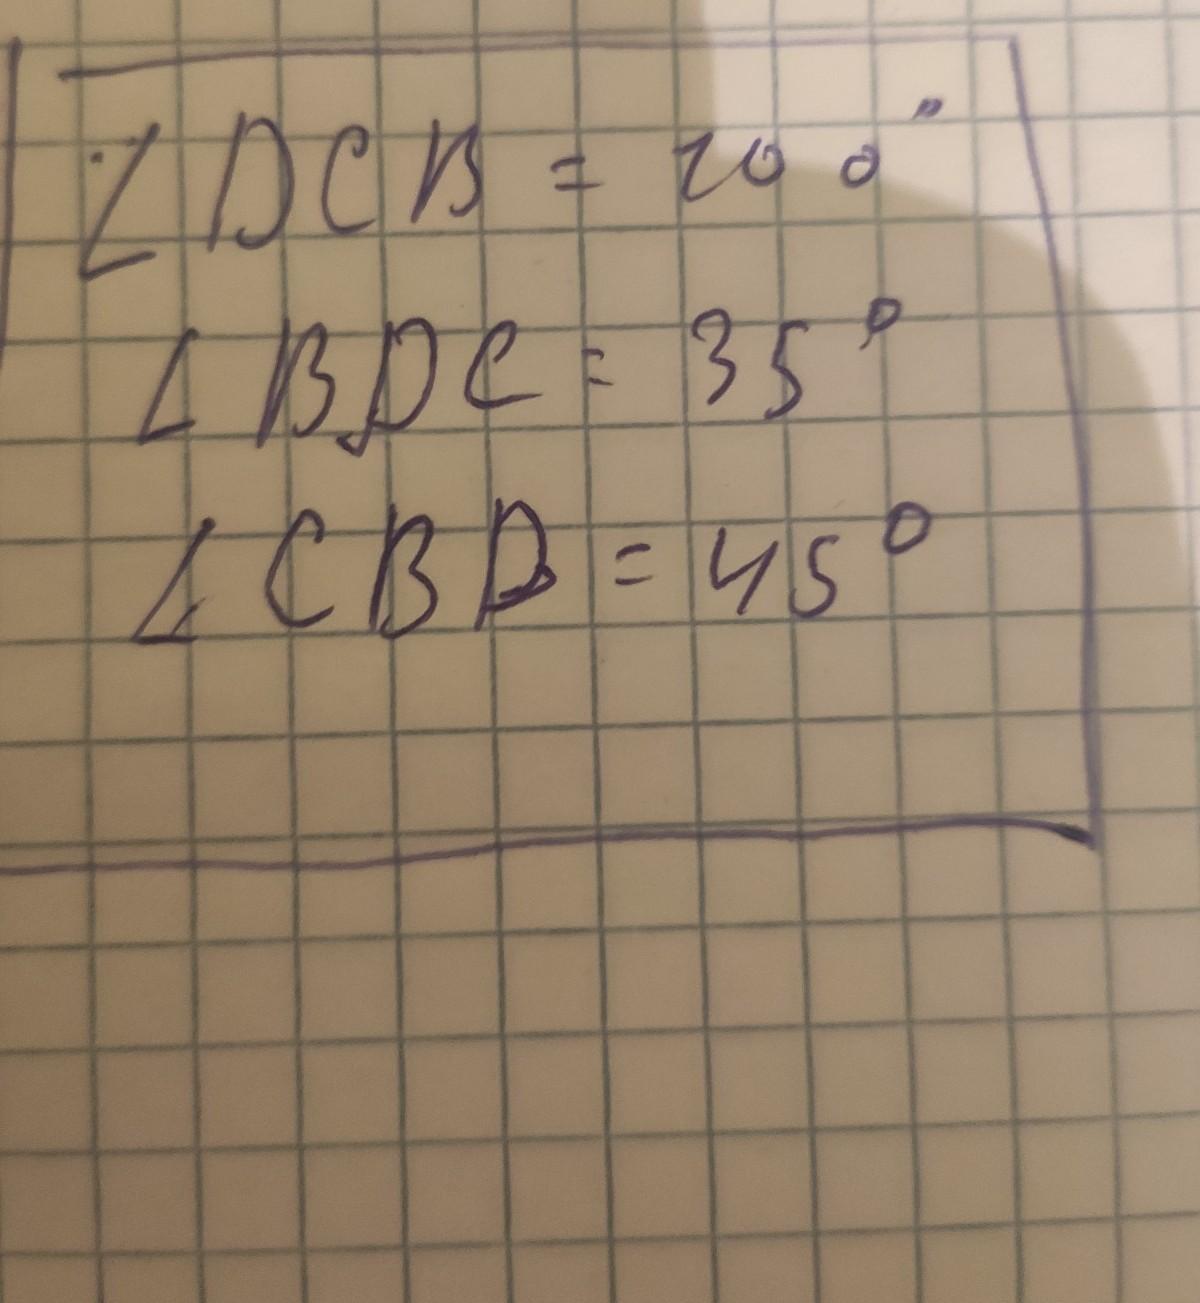 ∠DCB = 100°
∠BDC = 35°
∠CBD = 45°